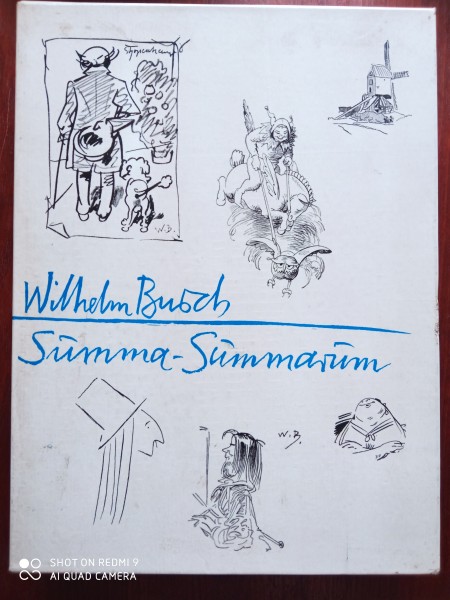 Schopenhauer
W.B.
Wilhelm Busch
Summa-Summarum
W.B.
SHOT ON REDMI 9
AI QUAD CAMERA